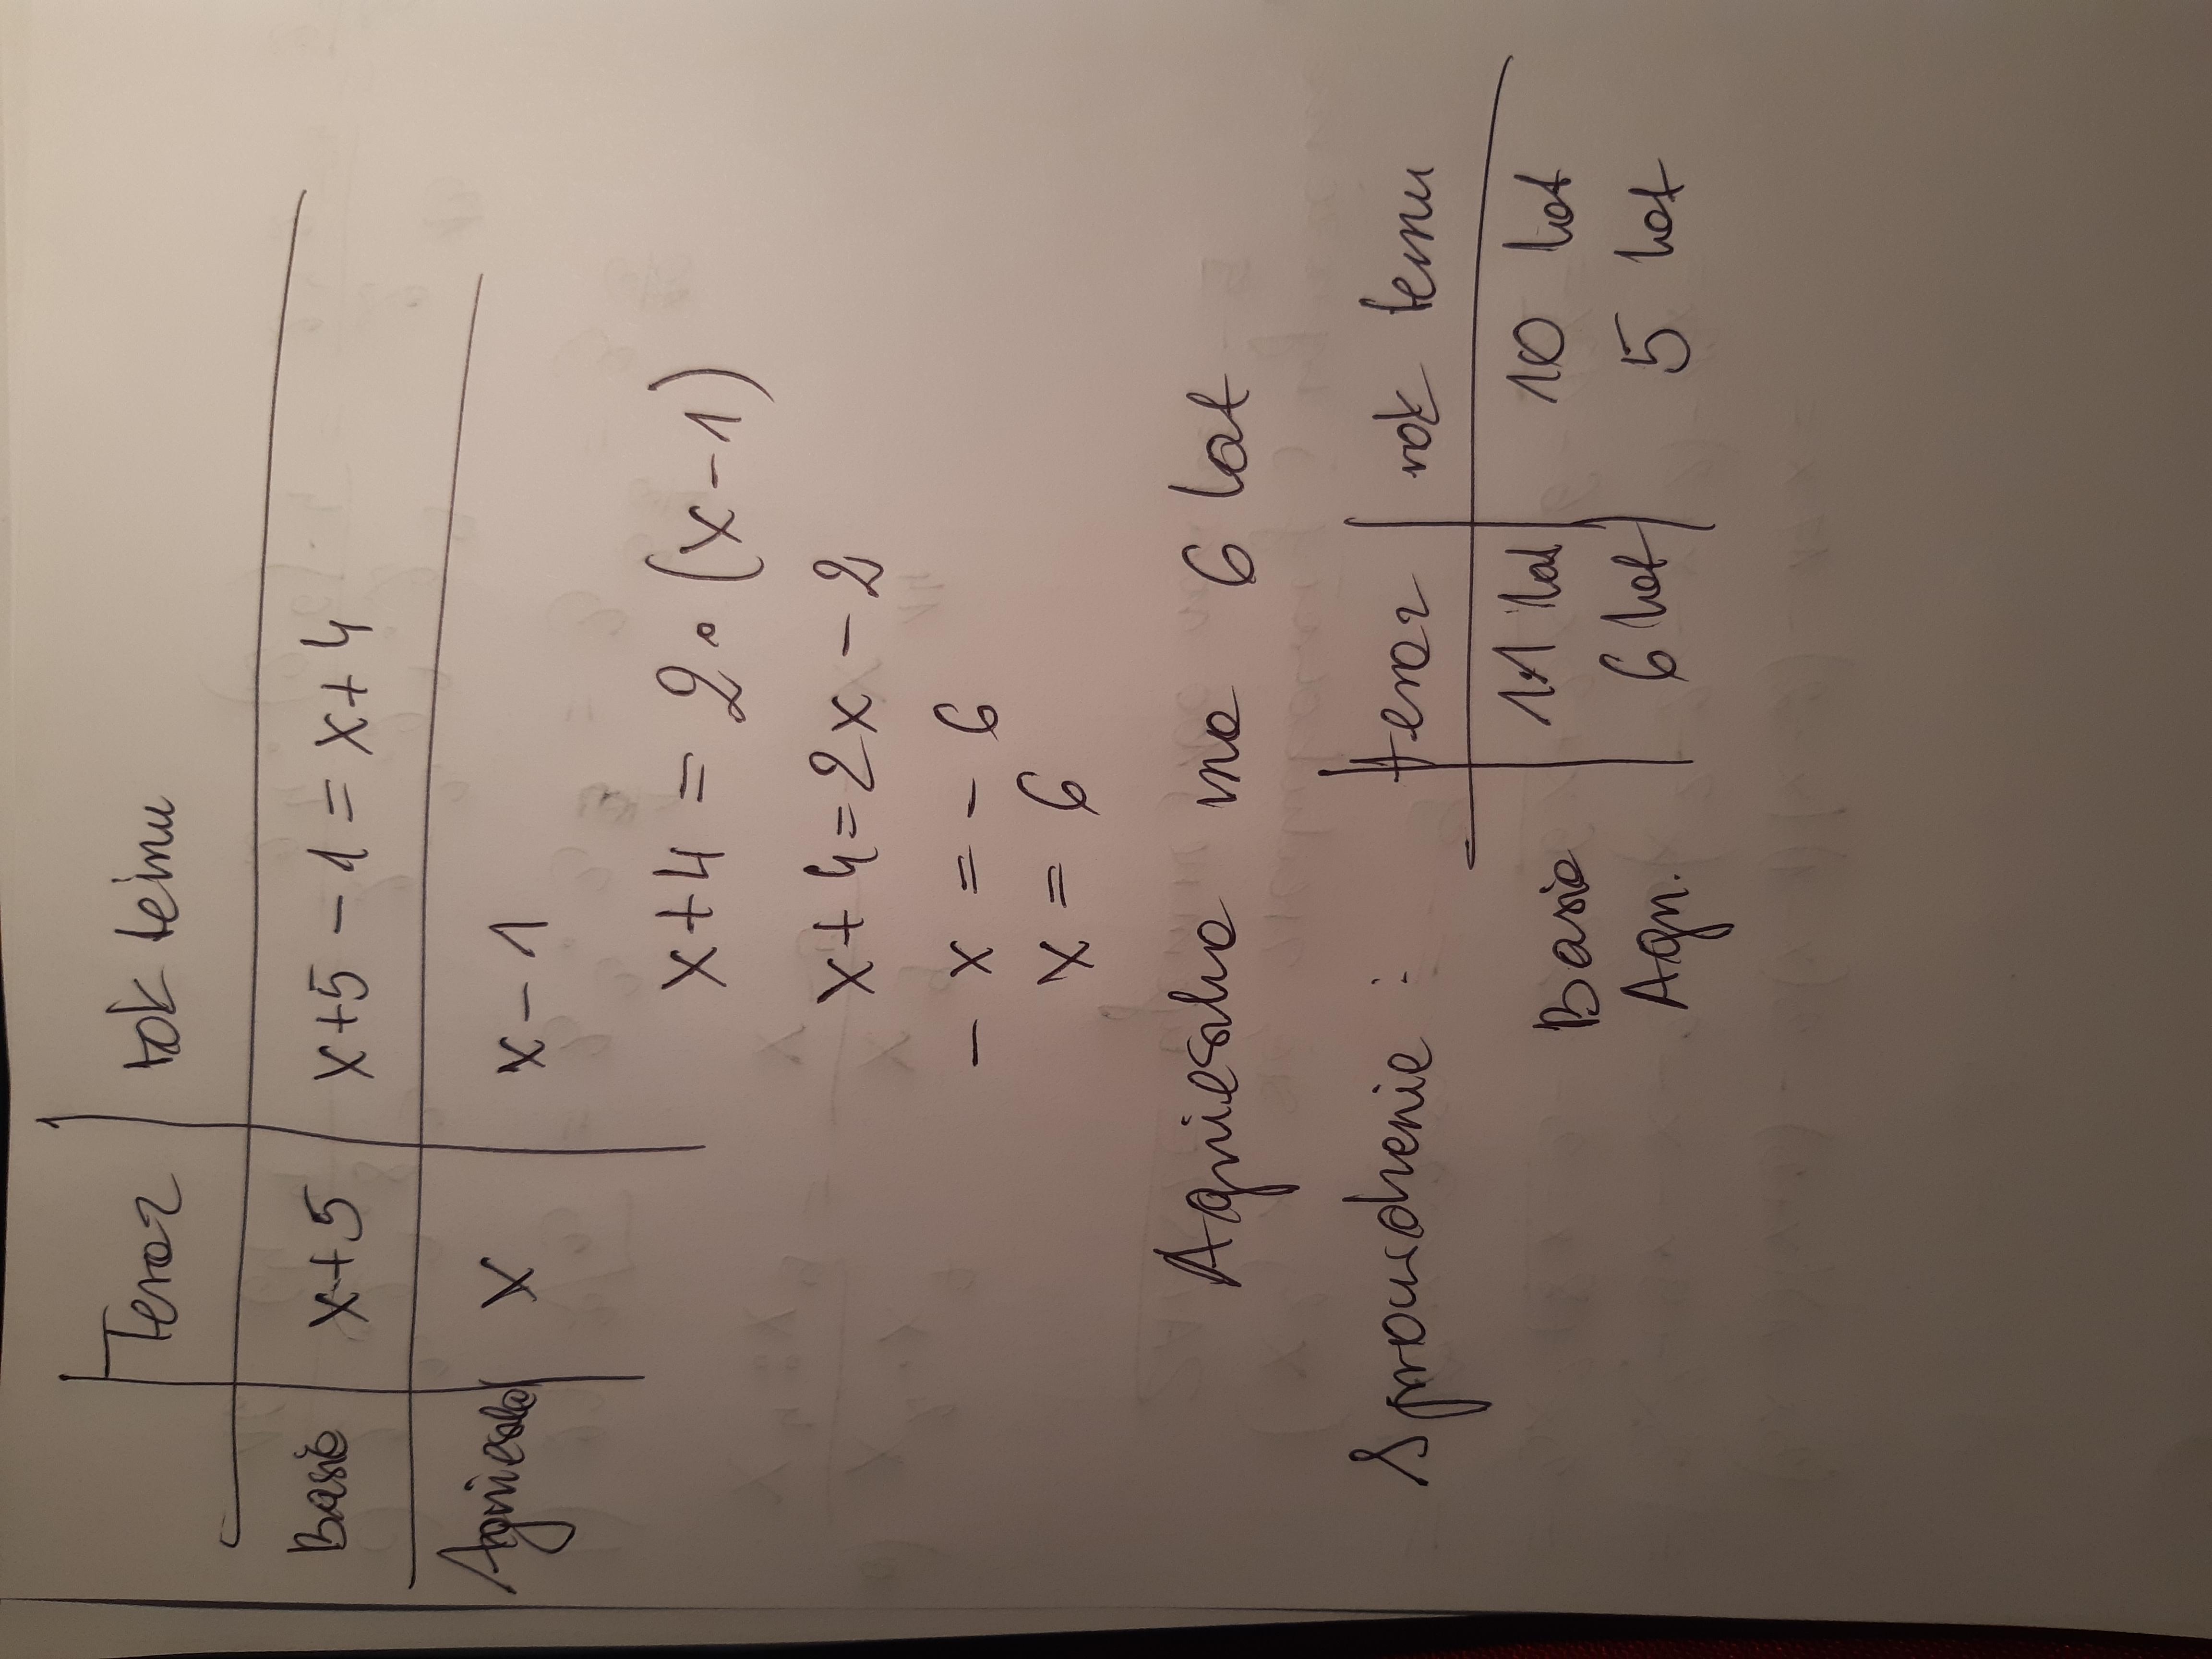 Teraz rok temu
Basia x+5 x+5-1=x+4
Agnieszka x x-1
x+4=2·(x-1)
x+4=2x-2
-x=-6
x=6
Agnieszka ma 6 lat
Sprawdzenie:
teraz rok temu
Basia 11 lat 10 lat
Agn. 6 lat 5 lat